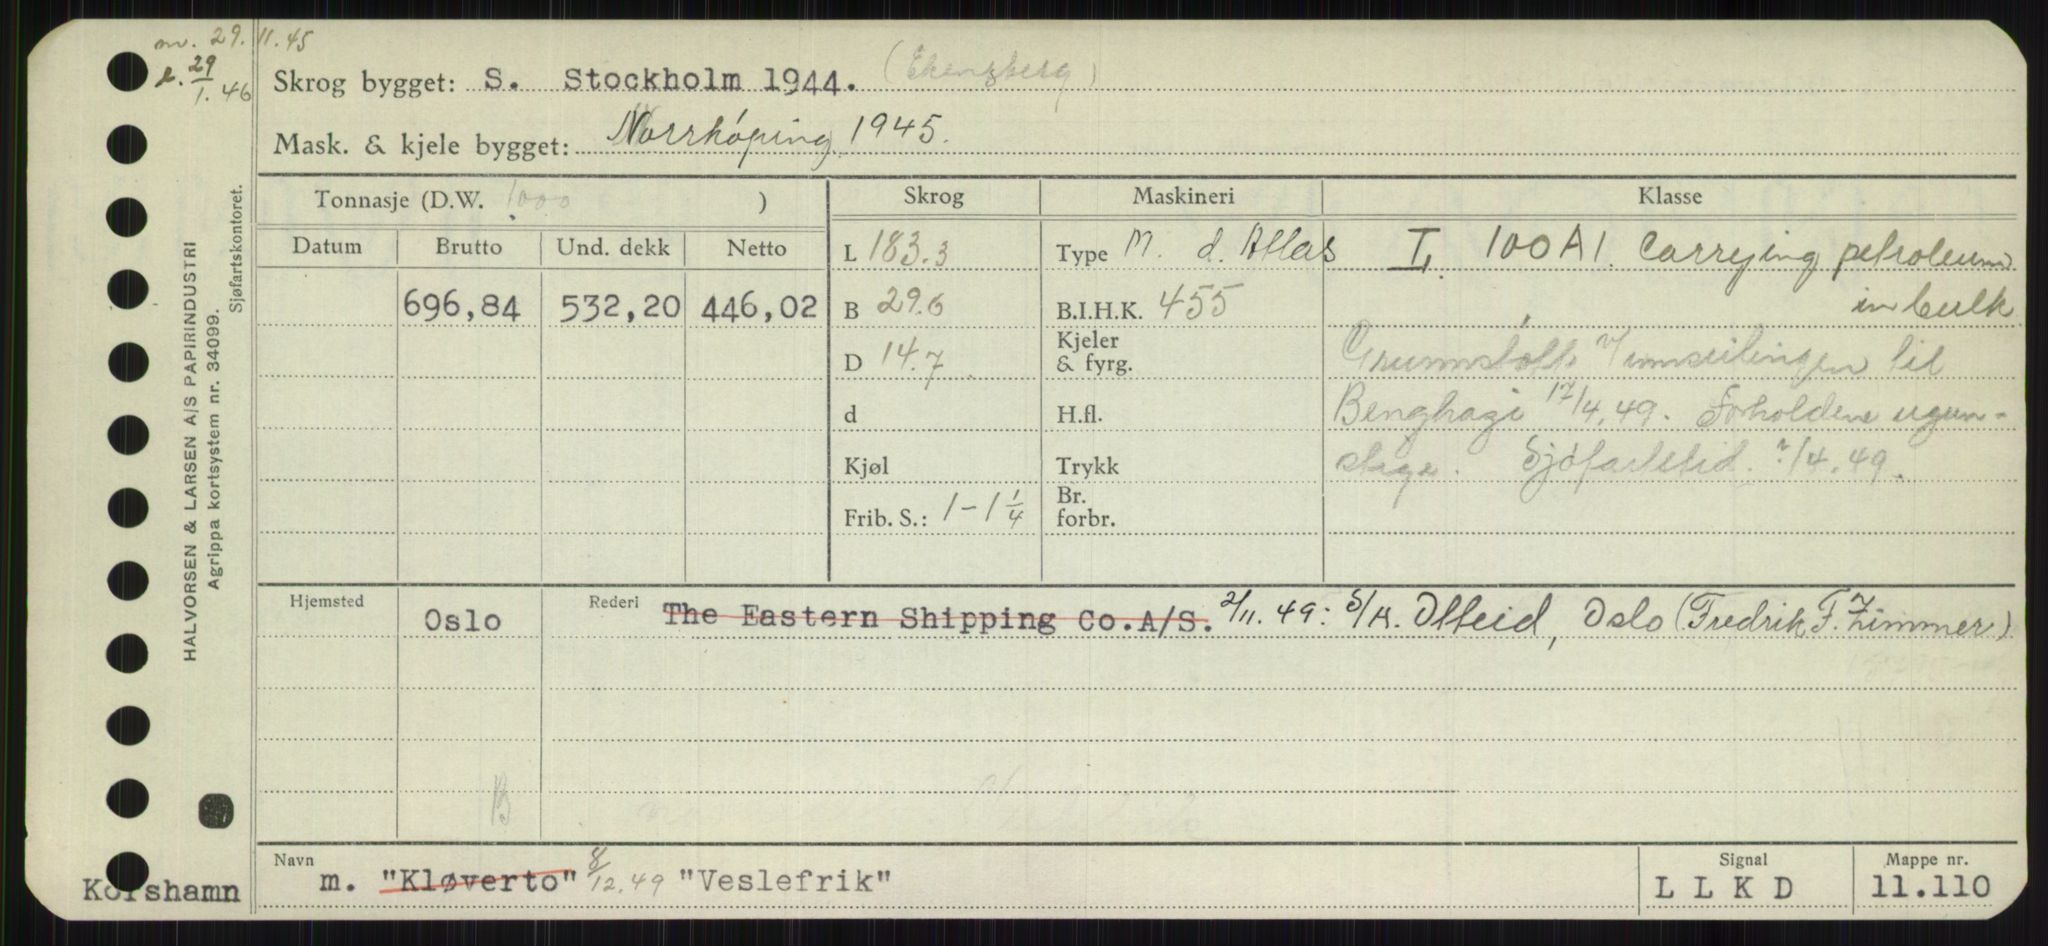 m. 29.11.45
k. 29/1.46
Skrog bygget: S. Stockholm 1944. (Ekensberg)
Mask. & kjele bygget: Norrköping 1945.
HALVORSEN & LARSEN A/S PAPIRINDUSTRI
Agrippa kortsystem nr. 34099.
Sjøfartskontoret.
Tonnasje (D.W. 1000 ) Skrog Maskineri Klasse
Datum Brutto Und. dekk Netto L 183.3 Type M. d. Atlas L. 100 A 1. Carrying petroleum
696,84 532,20 446,02 B 29.6 B.I.H.K. 455 in bulk
D 14.7 Kjeler & fyrg. Grunnstøtt v/innseilingen til
d H.fl. Benghazi 17/4.49. Forholdene ugun-
Kjøl Trykk stige. Sjöfartstid. /4.49.
Frib. S.: 1 - 1 1/4 Br. forbr.
Hjemsted Oslo Rederi The Eastern Shipping Co.A/S. 2/11.49: S/A. Olteid, Oslo (Fredrik F. Zimmer)
B
Navn m. "Kløverto" 8/12.49 "Veslefrik" Signal L L K D Mappe nr. 11.110
Korshamn